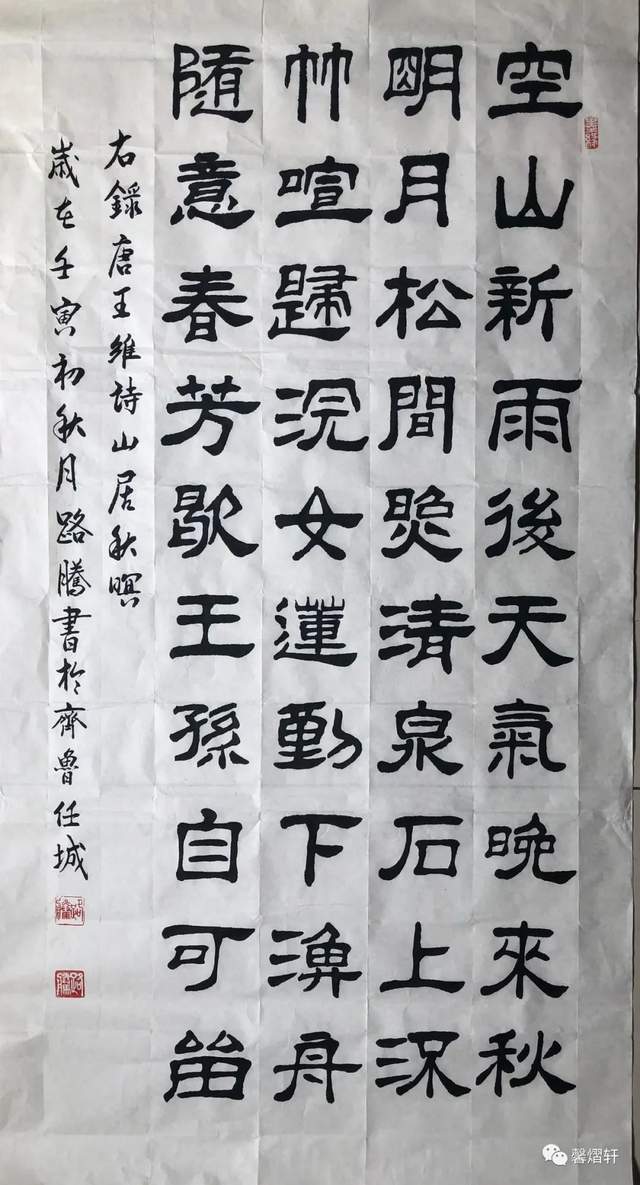 空山新雨後天氣晚來秋
明月松間照清泉石上流
竹喧歸浣女蓮動下漁舟
隨意春芳歇王孫自可留
右錄唐王維詩山居秋暝
歲在壬寅初秋月路騰書於齊魯任城
馨熠轩